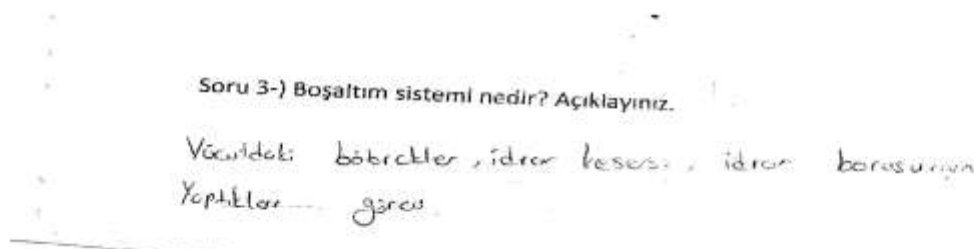 Soru 3-) Boşaltım sistemi nedir? Açıklayınız.
Vücuddaki böbrekler, idrar kesesi, idrar borusunun
Yaptıkları görev